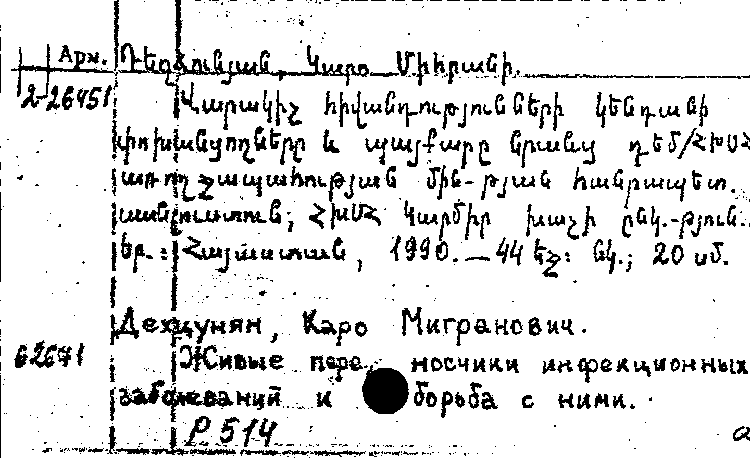 Арм. Դեղձունյան, Կարո Միհրանի.
2-26451 Վարակիչ հիվանդությունների կենդանի
փոխանցողները և պայքարը նրանց դեմ/ՀԽՍՀ
առողջապահության մին-թյան հանրապետ.
սան. տուն; ՀԽՍՀ Կարմիր խաչի ընկ.-թյուն.
Եր.: Հայաստան, 1990.—44 եջ: նկ.; 20 սմ.
Дехцунян, Каро Мигранович.
62671 Живые пере носчики инфекционных
заболеваний и борьба с ними.
Р 514